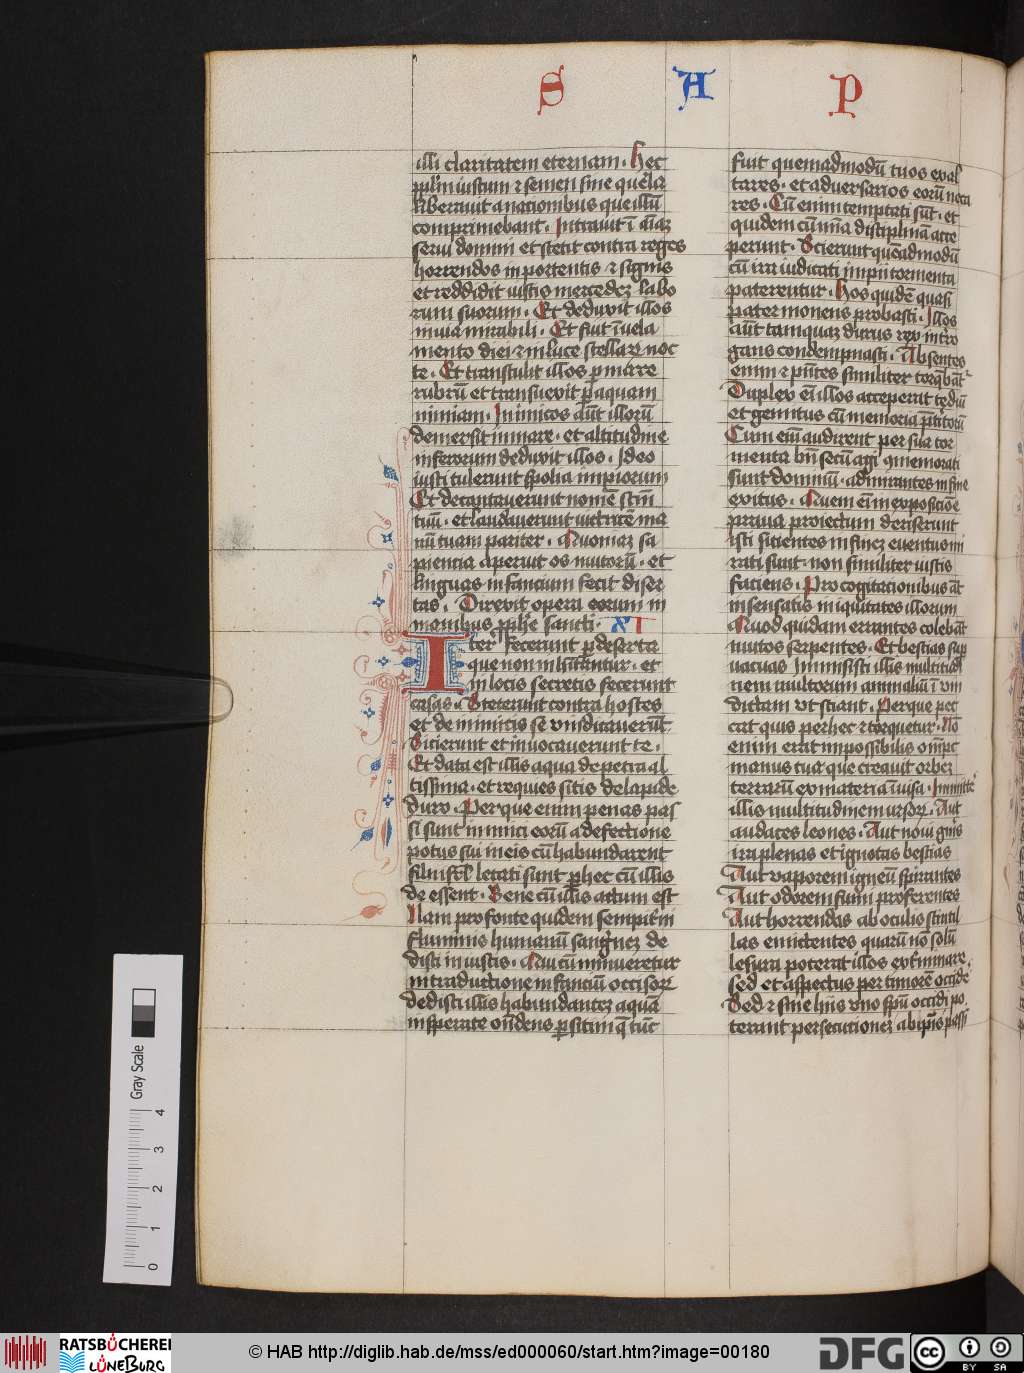 S A P
illi claritatem eternam. Hec
pplm iustum ⁊ semen sine querela
liberavit a nacionibus que illū
comprimebant. Intravit ī aīaz
servi domini et stetit contra reges
horrendos in portentis ⁊ signis
et reddidit iustis mercedez labo
rum suorum. Et deduxit illos
in via mirabili. Et fuit ī vela
mento diei ⁊ in luce stellarꝝ noc
te. Et transtulit illos p mare
rubrū et transvexit p aquam
nimiam. Inimicos aūt illorū
demersit in mare. et altitudine
inferorum deduxit illos. Ideo
iusti tulerunt spolia impiorum
Et decantaverunt nomē scm̄
tuū. et laudaverunt victricē ma
nū tuam pariter. Quoniaz sa
piencia aperuit os mutorū. et
linguas infancium fecit diser
tas. Direxit opera eorum in
manibus pphe sancti. XI
Iter fecerunt p deserta
que non inhītantur. et
in locis secretis fecerunt
casas. Steterunt contra hostes
et de inimicis se vindicaverūt
Sicierunt et invocaverunt te.
Et data est illis aqua de petra al
tissima. et requies sitis de lapide
duro. Per que enim penas pas
si sunt inimici eorū a defectione
potus sui in eis cū habundarent
filii isrl letati sunt p hec cū illis
de essent. Bene cū illis actum est
Nam pro fonte quidem sempitīni
fluminis humanū sangnez de
disti iniustis. Qui cū minueretur
in traductione infanciū occisorꝝ
dedisti illis habundantez aquā
insperate ondens p sitim q̄ tūc
fuit quemadmodū tuos exal
tares. et adversarios eorū neca
res. Cū enim temptati sūt. et
quidem cū mīa disciplinā acce
perunt. Scierunt quēadmodū
cū ira iudicati impii tormenta
paterentur. Hos quidē quasi
pater monens probasti. Illos
aūt tamquaz durus rex intro
gans condempnasti. Absentes
enim ⁊ pn̄tes similiter torqbāt
Duplex eī illos acceperat tediū
et gemitus cū memoria
Cum eim audirent per sua tor
menta bn̄ secū agi ꝯmemorati
sunt dominū. admirantes in fine
exitus. Quem eī in exposicioē
prava proiectum deriserunt
isti sicientes in finez eventus mi
rati sunt. non similiter iustis
faciens. Pro cogitacionibus āt
insensatis iniquitates illorum
Quod quidam errantes colebāt
mutos serpentes. Et bestias sup
vacuas Immisisti illis multitudi
nem multorum animaliū ī vin
dictam ut sciant. Per que pec
cat quis per hec ⁊ torquetur. Nō
enim erat impossibilis omīpc
manus tua que creavit orbez
terrarū ex materia īvisa. Inmitte
illis multitudinem ursorꝝ. Aut
audaces leones. Aut novi gn̄is
ira plenas et ignotas bestias
Aut vaporem igneū spirantes
Aut odorem fumi proferentes
Aut horrendas ab oculis scintil
las emictentes quarū nō solū
lesura poterat illos exterminare.
sed et aspectus per timorē occide
Sed ⁊ sine hiis uno spū occidi po
terant persecutionez ab ipīs passi
Gray Scale
0 1 2 3 4
RATSBÜCHEREI LÜNEBURG
© HAB http://diglib.hab.de/mss/ed000060/start.htm?image=00180
DFG
cc BY SA